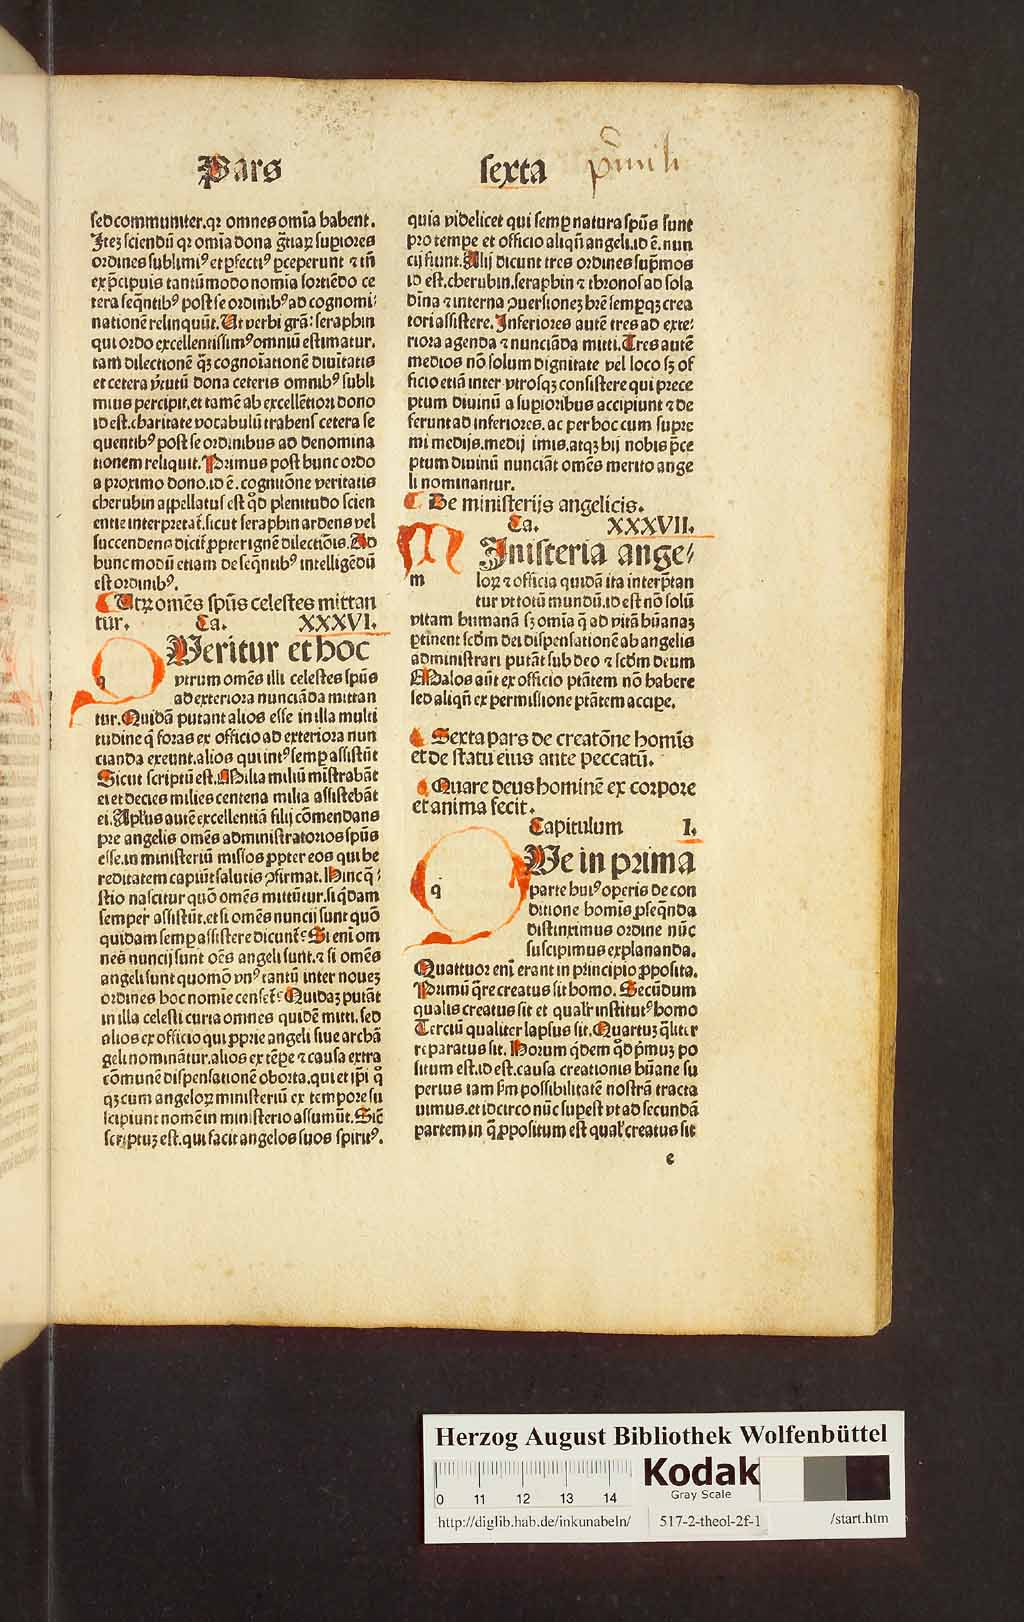 Pars sexta
sed communiter.qꝛ omnes om̄ia habent.
Itez sciendū qꝛ om̄ia dona gr̄aꝝ supiores
ordines sublimi⁹ et ꝑfecti⁹ ꝑceperunt ⁊ tn̄
ex p̄cipuis tantūmodo nomīa sortiēdo ce
tera seq̄ntib⁹ post se ordinib⁹ ad cognomi-
nationē relinquūt. Ut verbi grā: seraphin
qui ordo excellentissim⁹ omniū estimatur.
tam dilectionē qꝫ cognoīationē diuītatis
et cetera v̄tutū dona ceteris omnib⁹ subli
mius percipit.et tamē ab excellētiori dono
id est.charitate vocabulū trahens cetera se
quentib⁹ post se ordinibus ad denomina
tionem reliquit. Primus post hunc ordo
a proximo dono.id ē. cognitiōne veritatis
cherubin appellatus est qd̄ plenitudo scien
entie interpretat̄.sicut seraphin ardens vel
succendens dicit̄ ꝓpter ignē dilectiōis. Ad
hunc modū etiam de seq̄ntib⁹ intelligēdū
est ordinib⁹.
Utꝝ omēs spūs celestes mittan
tur. Ca. XXXVI.
QUeritur et hoc
q vtrum omēs illi celestes spūs
ad exteriora nunciāda mittan
tur. Quidā putant alios esse in illa multi
tudine q̄ foras ex officio ad exteriora nun
cianda exeunt.alios qui int⁹ semꝑ assistūt
Sicut scriptū est. Milia miliū mīstrabāt
ei et decies milies centena milia assistebāt
ei. Apl̄us autē excellentiā filij cōmendans
pre angelis omēs administratorios spūs
esse.in ministeriū missos ꝓpter eos qui he
reditatem capiūt salutis ꝯfirmat. Hinc q̄-
stio nascitur quō omēs mittūtur.si qdam
semper assistūt.et si omēs nuncij sunt quō
quidam semꝑ assistere dicunt̄: Si eni om
nes nuncij sunt oēs angeli sunt.⁊ si omēs
angeli sunt quomō vn⁹ tantū inter nouez
ordines hoc nomīe censet̄: Quidaz putāt
in illa celesti curia omnes quidē mitti. sed
alios ex officio qui ꝓprie angeli siue archā
geli nominātur.alios ex tēpe ⁊ causa extra
cōmunē dispensationē oborta.qui et ip̄i q̄
qꝫ cum angeloꝝ ministeriū ex tempore su
scipiunt nomē in ministerio assumūt. Sic
scriptuz est.qui facit angelos suos spirit⁹.
quia videlicet qui semꝑ natura spūs sunt
pro tempe et officio aliqn̄ angeli.id ē.nun
cij fiunt. Alij dicunt tres ordines supmos
id est.cherubin.seraphin ⁊ thronos ad sola
dīna ⁊ interna ꝯuersionez hr̄e semꝑqꝫ crea
tori assistere. Inferiores autē tres ad exte-
riora agenda ⁊ nunciāda mitti. Tres autē
medios nō solum dignitate vel loco sꝫ of
ficio etiā inter vtrosqꝫ consistere qui prece
ptum diuinū a supioribus accipiunt ⁊ de
ferunt ad inferiores. ac per hoc cum supre
mi medijs.medij imis.atqꝫ hij nobis p̄ce
ptum diuinū nunciāt omēs merito ange
li nominantur.
De ministerijs angelicis.
Ca. XXXVII.
MInisteria ange-
m loꝝ ⁊ officia quidā ita interp̄tan
tur vt totū mundū.id est nō solū
vitam humanā sꝫ omīa q̄ ad vitā hūanaz
ꝑtinent scd̄m dei dispensationē ab angelis
administrari putāt sub deo ⁊ scd̄m deum
Malos aūt ex officio ptātem nō habere
sed aliqn̄ ex permissione ptātem accipe.
Sexta pars de creatōne homīs
et de statu eius ante peccatū.
Quare deus hominē ex corpore
et anima fecit.
Capitulum I.
QUe in prima
q parte hui⁹ operis de con
ditione homīs ꝓseq̄nda
distinximus ordine nūc
suscipimus explananda.
Quattuor eni erant in principio ꝓposita.
Primū q̄re creatus sit homo. Secūdum
qualis creatus sit et qualr̄ institut⁹ homo
Terciū qualiter lapsus sit. Quartuz q̄liter
reparatus sit. Horum qdem qd̄ pmuz po
situm est.id est.causa creationis hūane su
perius iam s̄m possibilitatē nostrā tracta
uimus.et idcirco nūc supest vt ad secundā
partem in q̄ ꝓpositum est qualr̄ creatus sit
e
Herzog August Bibliothek Wolfenbüttel
0 11 12 13 14
Kodak
Gray Scale
http://diglib.hab.de/inkunabeln/ 517-2-theol-2f-1 /start.htm